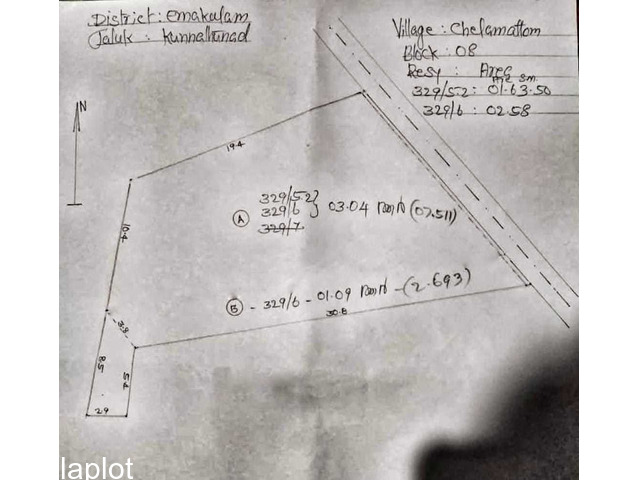 District : Ernakulam
Taluk : Kunnathunad
Village : Chelamattom
Block : 08
Resy : Area
Are Sm
329/5-2 : 01.63.50
329/6 : 02.58
N
19.4
10.4
329/5-2
A 329/6 } 03.04 (07.511)
329/7
B - 329/6 - 01.09 - (2.693)
30.8
3.9
8.5
5.2
2.9
laplot